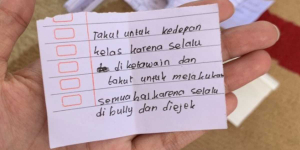 Takut untuk kedepan
kelas karena selalu
di ketawain dan
takut untuk melakukan
semua hal karena selalu
di bully dan diejek